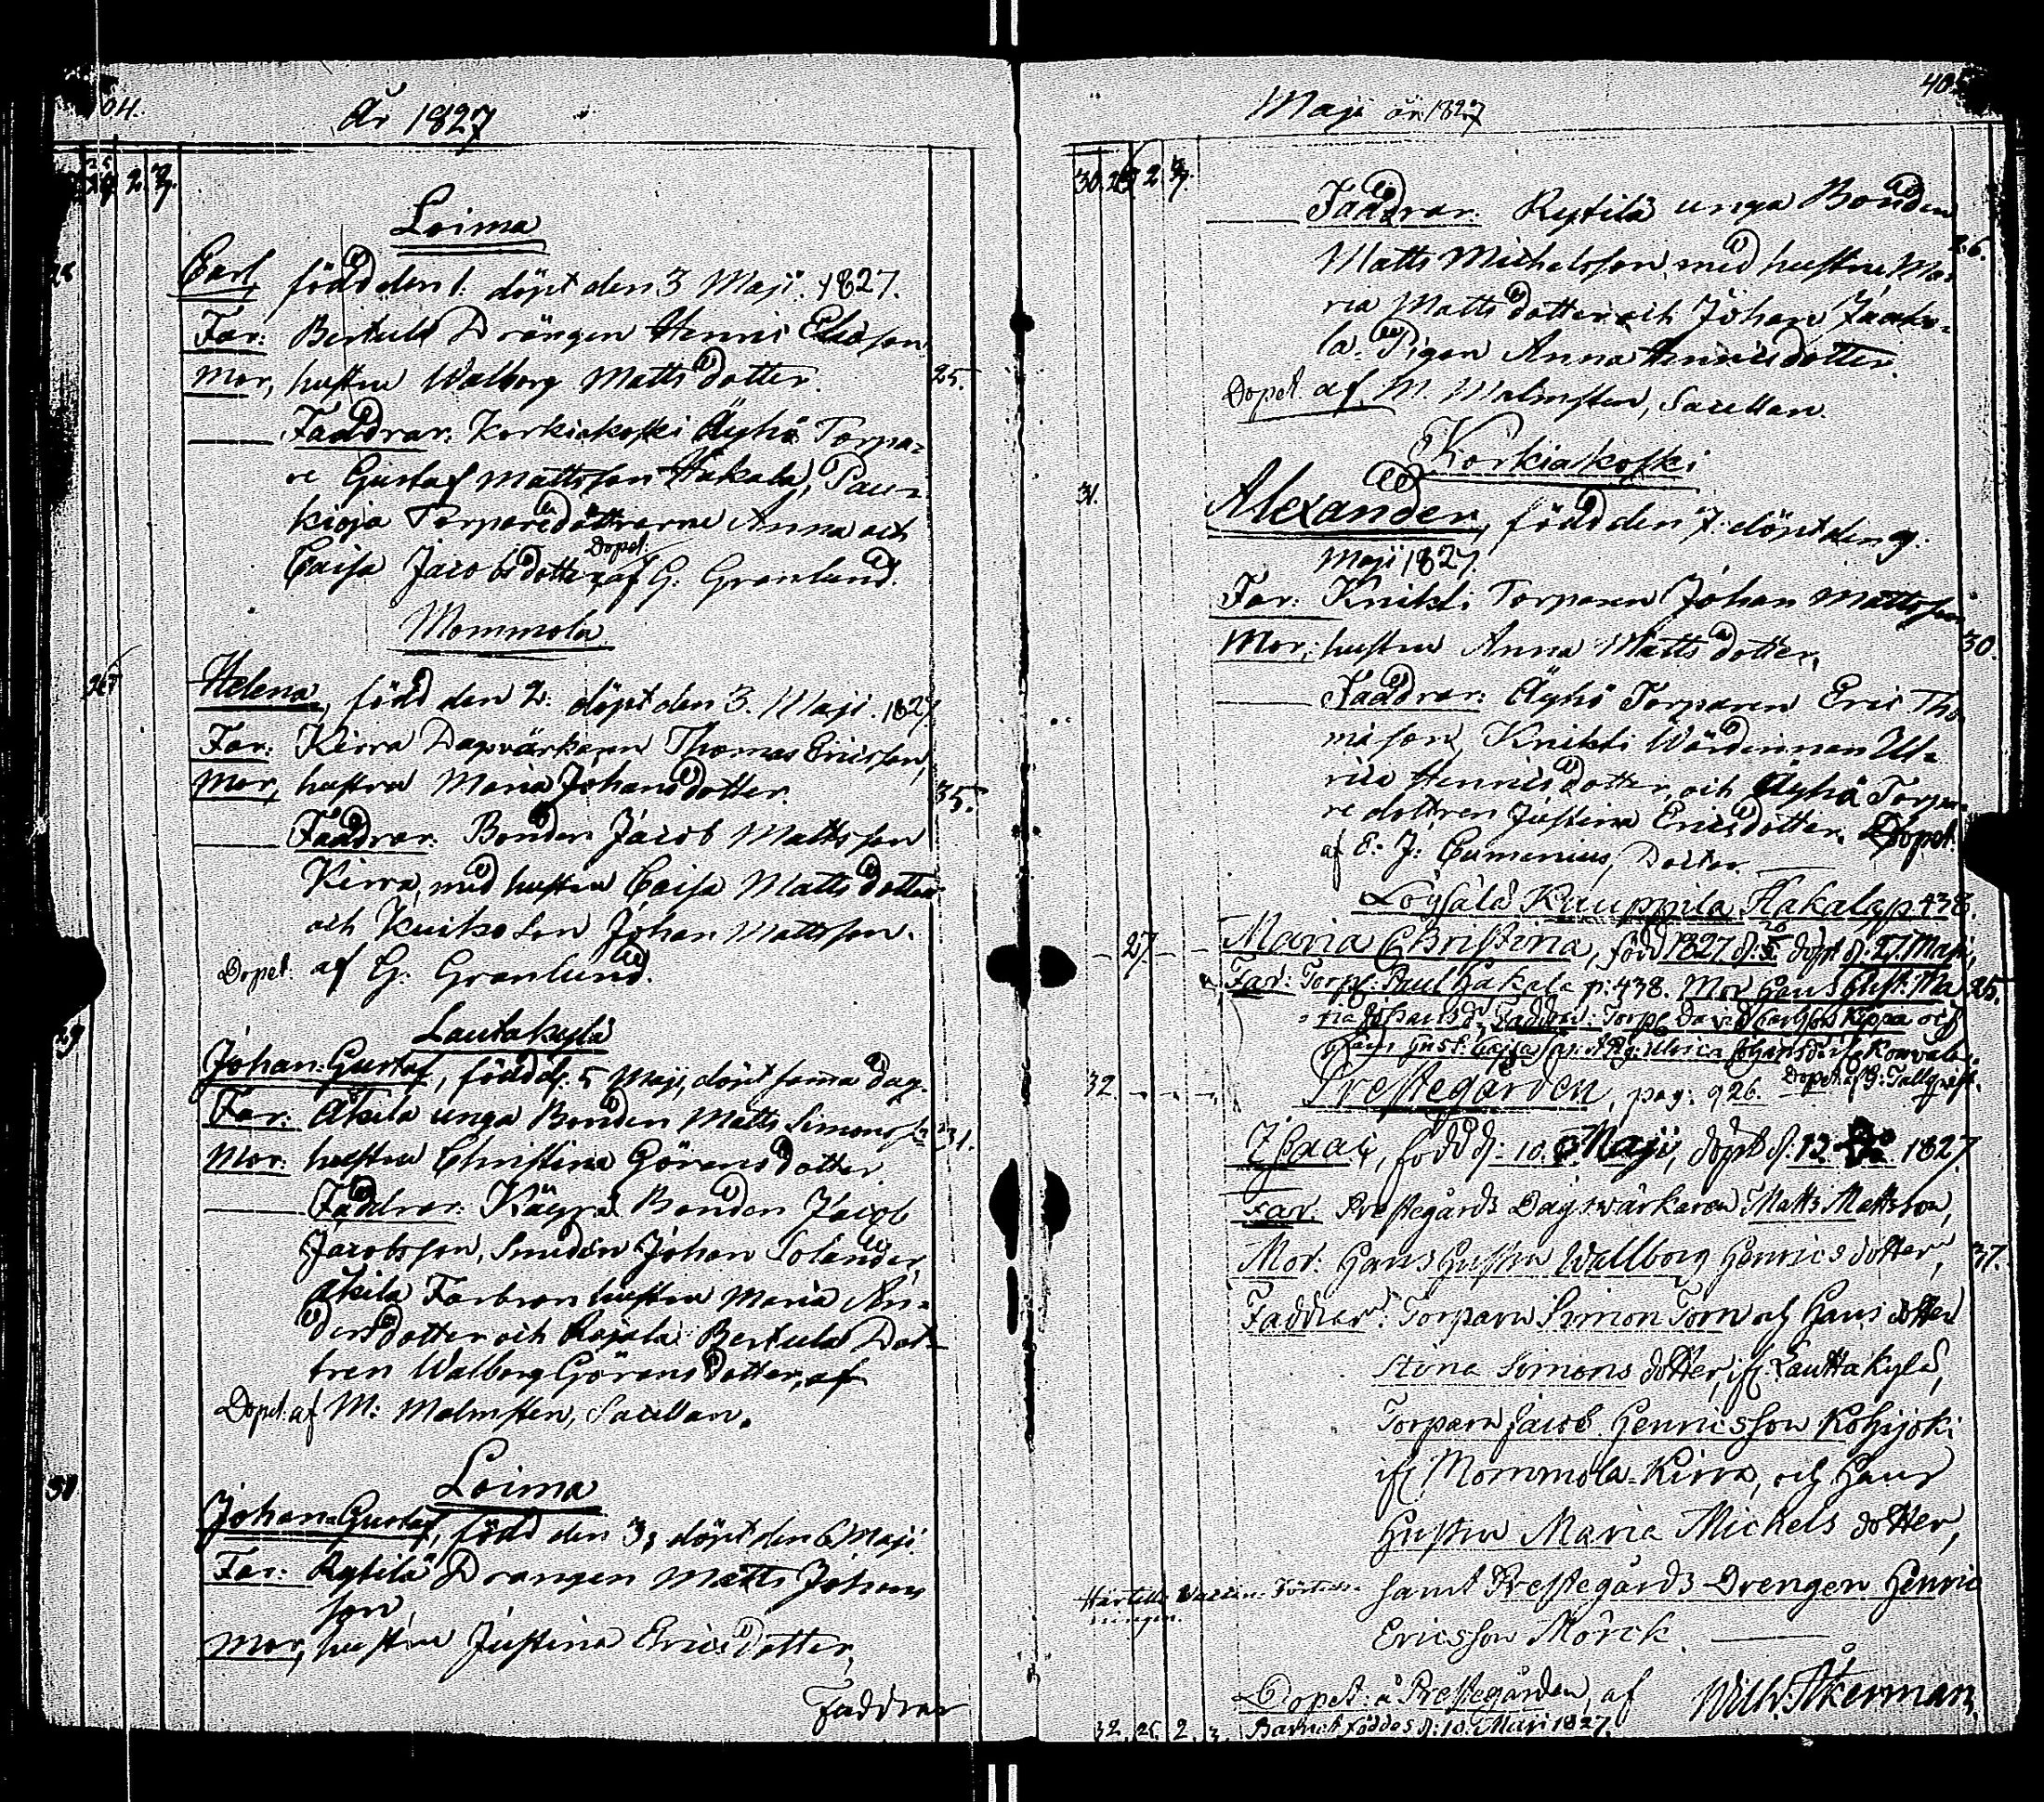 År 1827
2. 3.
Loima
28
Carl, född den 1. döpt den 3 Maji. 1827.
Far: Bertula Drängen Henric Ericsson
Mor, hustru Walborg Matts dotter. 25.
Faddrar: Korkiakoski Äyhö Torpa-
re Gustaf Mattsson Hakala, Pau-
kioja Torparedöttrarne Anna och
Caisa Jacobs dotter, Dopet: af G: Granlund.
Mommola
Helena, född den 2. döpt den 3. Maji. 1827
Far: Kirra Dagvärkaren Thomas Ericsson,
Mor, hustru Maria Johans dotter. 35.
Faddrar: Bonden Jacob Mattsson
Kirra, med hustru Caisa Matts dotter
och Johan Mattsson.
Dopet: af G: Granlund.
29
Lautakylä
Johan Gustaf, född d: 5 Maji, döpt samma dag.
Far: Äkila unga Bonden Matts Simonss: 31.
Mor: hustru Christina Görans dotter
Faddrar: Käyrä Bonden Jacob
Jacobsson, Smeden Johan Solander,
Äkila Farbrors hustru Maria An-
ders dotter och Rajala Bertula Dot-
tren Walborg Görans dotter, af
Dopet: af M: Malmsten, Sacellan.
Loima
Johan Gustaf, född den 3, döpt den 6 Maji
Far: Rytilä Drängen Matts Johans
son,
Mor, hustru Justina Erics dotter,
Faddrar
Maji år 1827
405
30. 2 3.
Faddrar: Rytilä unga Bonden
Matts Michelsson, med hustru Ma- 26.
ria Matts dotter och Johan
la Pigan Anna Henricsdotter.
Dopet: af M. Malmsten, Sacellan.
Korkiakoski
31.
Alexander, född den 7. döpt den 9.
Maji 1827.
Far: Knihti Torparen Johan Mattsson
Mor: hustru Anna Matts dotter, 30.
Faddrar: Äyhö Torparen Eric Tho-
masson, Knihti Wärdinnan Ul-
rica Henrics dotter, och Äyhö Torpa-
re dottren Justina Erics dotter. Dopet:
af E. J: Eumenius, Docter.
Löysälä Kauppila Hakala p. 438.
27
Maria Christina, född 1827 d: döpt d: 27. Maji,
Far: Torp: Paul Hakala p: 438. Mor Hans Hust: Ma- 25.
ria Johansd: Faddrar: Torp: David Carlsson Kippa och
Hans Hust: Caisa Ulrica Johansd:
Dopet: af G: Tallqvist.
32.
Prestegården, pag: 926.
Isaac, född d: 10. Maji, döpt d: 13. D:o 1827
Far: Prestegårds Dagsvärkaren Matts Mattsson,
Mor: Hans Hustru Wallborg Henrics dotter, 37.
Faddrar: Torparn Simon Torn och Hans dotter
Stina Simons dotter, ifr: Lauttakylä,
Torparn Jacob Henricsson Kohijoki
ifr Mommola-Kirra, och Hans
Hustru Maria Michels dotter,
samt Prestegårds Drengen Henric
Ericsson Mörck.
Dopet: å Prestegården, af Wilh: Åkerman,
32. 25. 2. 3. Barnet föddes d: 10. Maji 1827.